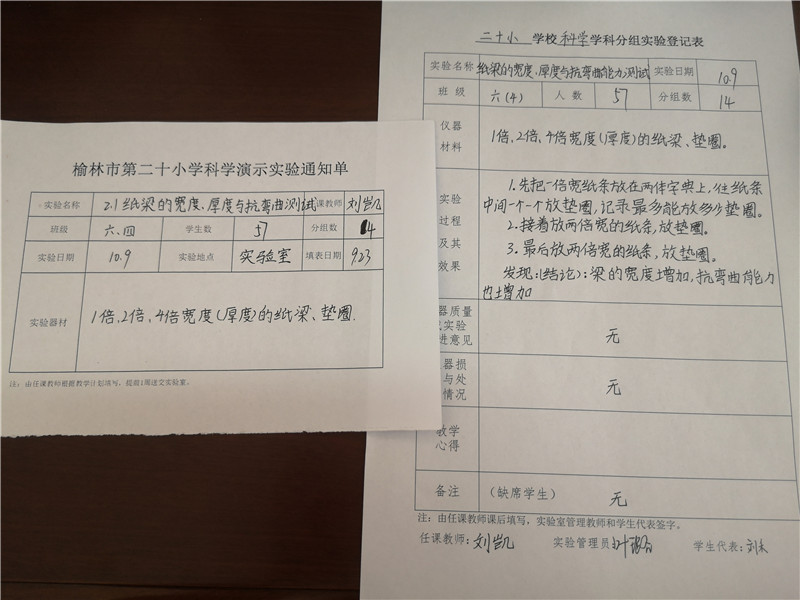 榆林市第二十小学科学演示实验通知单
实验名称 2.1纸梁的宽度、厚度与抗弯曲测试 课教师 刘凯
班级 六、四 学生数 57 分组数 14
实验日期 10.9 实验地点 实验室 填表日期 9.23
实验器材 1倍、2倍、4倍宽度(厚度)的纸梁、垫圈.
注：由任课教师根据教学计划填写，提前1周送交实验室。
二十小 学校 科学 学科分组实验登记表
实验名称 纸梁的宽度、厚度与抗弯曲能力测试 实验日期 10.9
班级 六(4) 人数 57 分组数 14
仪器材料 1倍、2倍、4倍宽度(厚度)的纸梁、垫圈。
实验过程及其效果
1.先把一倍宽纸条放在两本字典上，往纸条
中间一个一个放垫圈，记录最多能放多少垫圈。
2.接着放两倍宽的纸条，放垫圈。
3.最后放两倍宽的纸条，放垫圈。
发现:(结论):梁的宽度增加，抗弯曲能力
也增加
器质量
实验
进意见 无
器损
与处
情况 无
教学
心得
备注 (缺席学生) 无
注：由任课教师课后填写，实验室管理教师和学生代表签字。
任课教师：刘凯 实验管理员 学生代表：刘